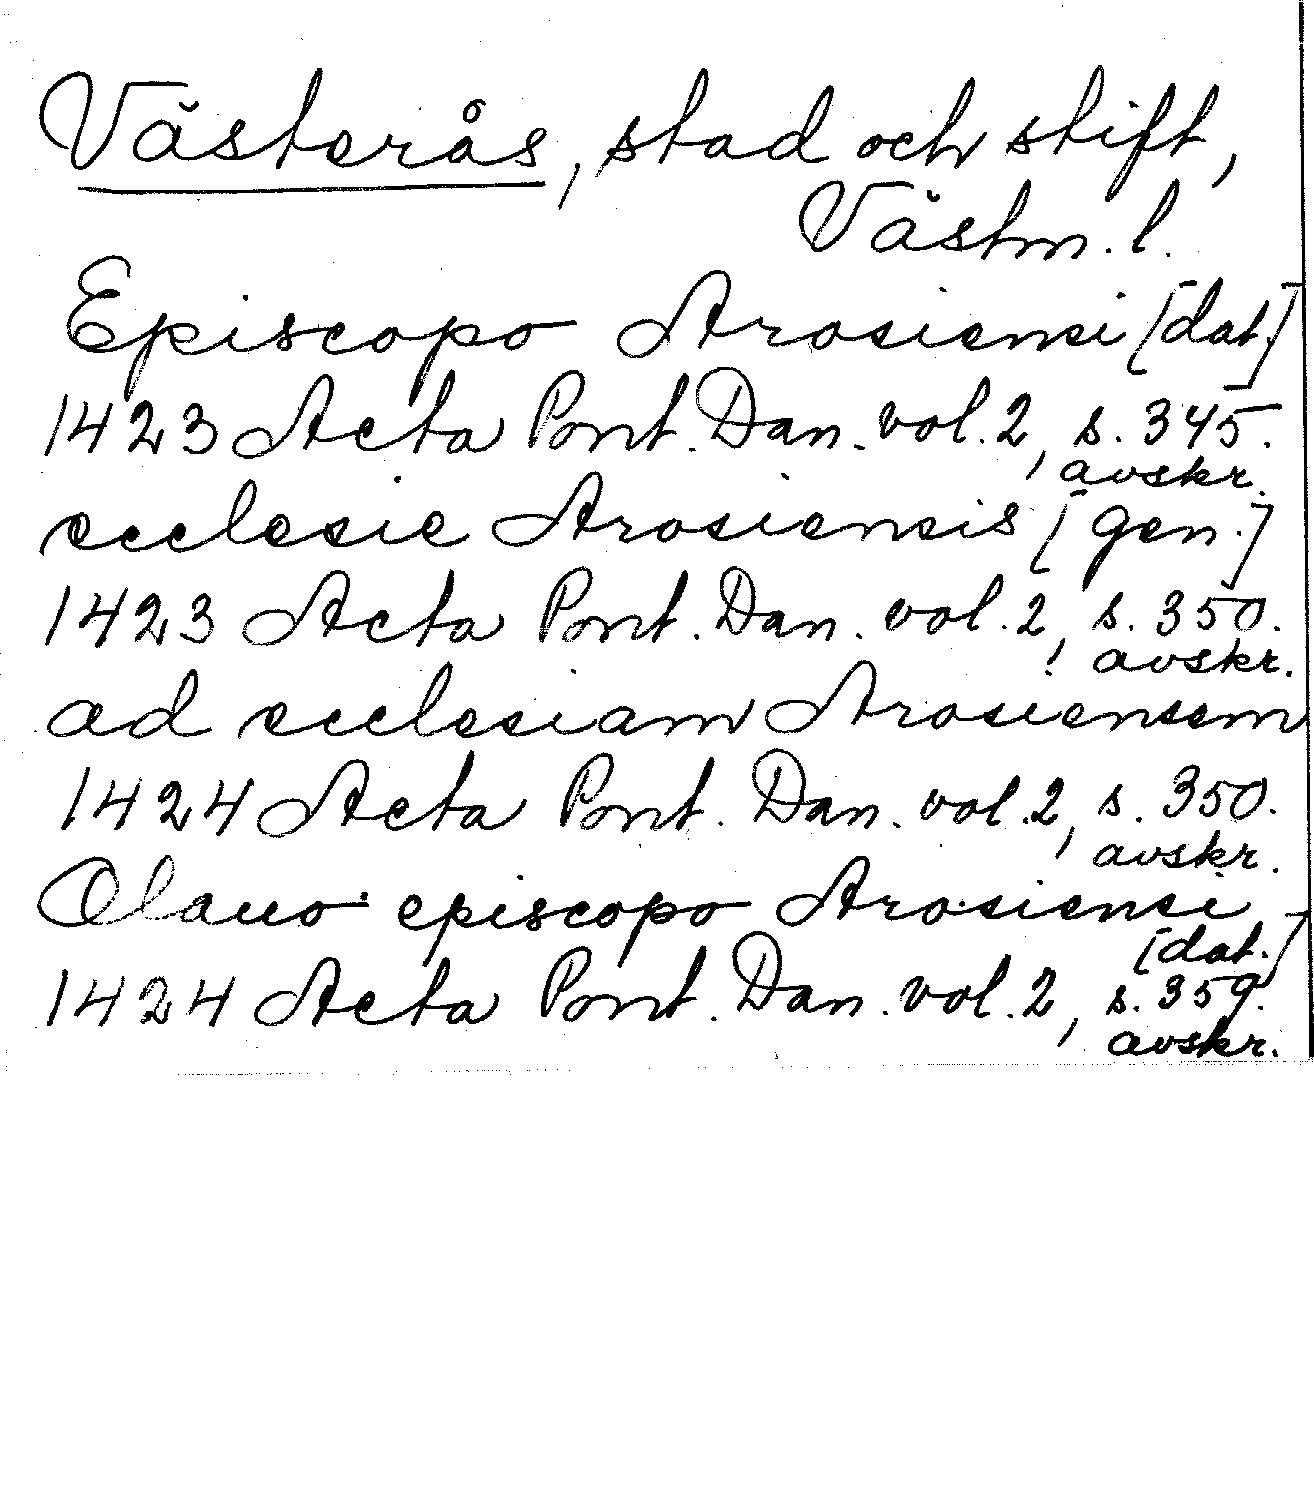 Västerås, stad och stift,
Västm. l.
Episcopo Arosiensi [dat.]
1423 Acta Pont. Dan. vol. 2, s. 345.
avskr.
ecclesie Arosiensis [gen.]
1423 Acta Pont. Dan. vol. 2, s. 350.
avskr.
ad ecclesiam Arosiensem
1424 Acta Pont. Dan. vol. 2, s. 350.
avskr.
Olauo episcopo Arosiensi
[dat.]
1424 Acta Pont. Dan. vol. 2, s. 359.
avskr.